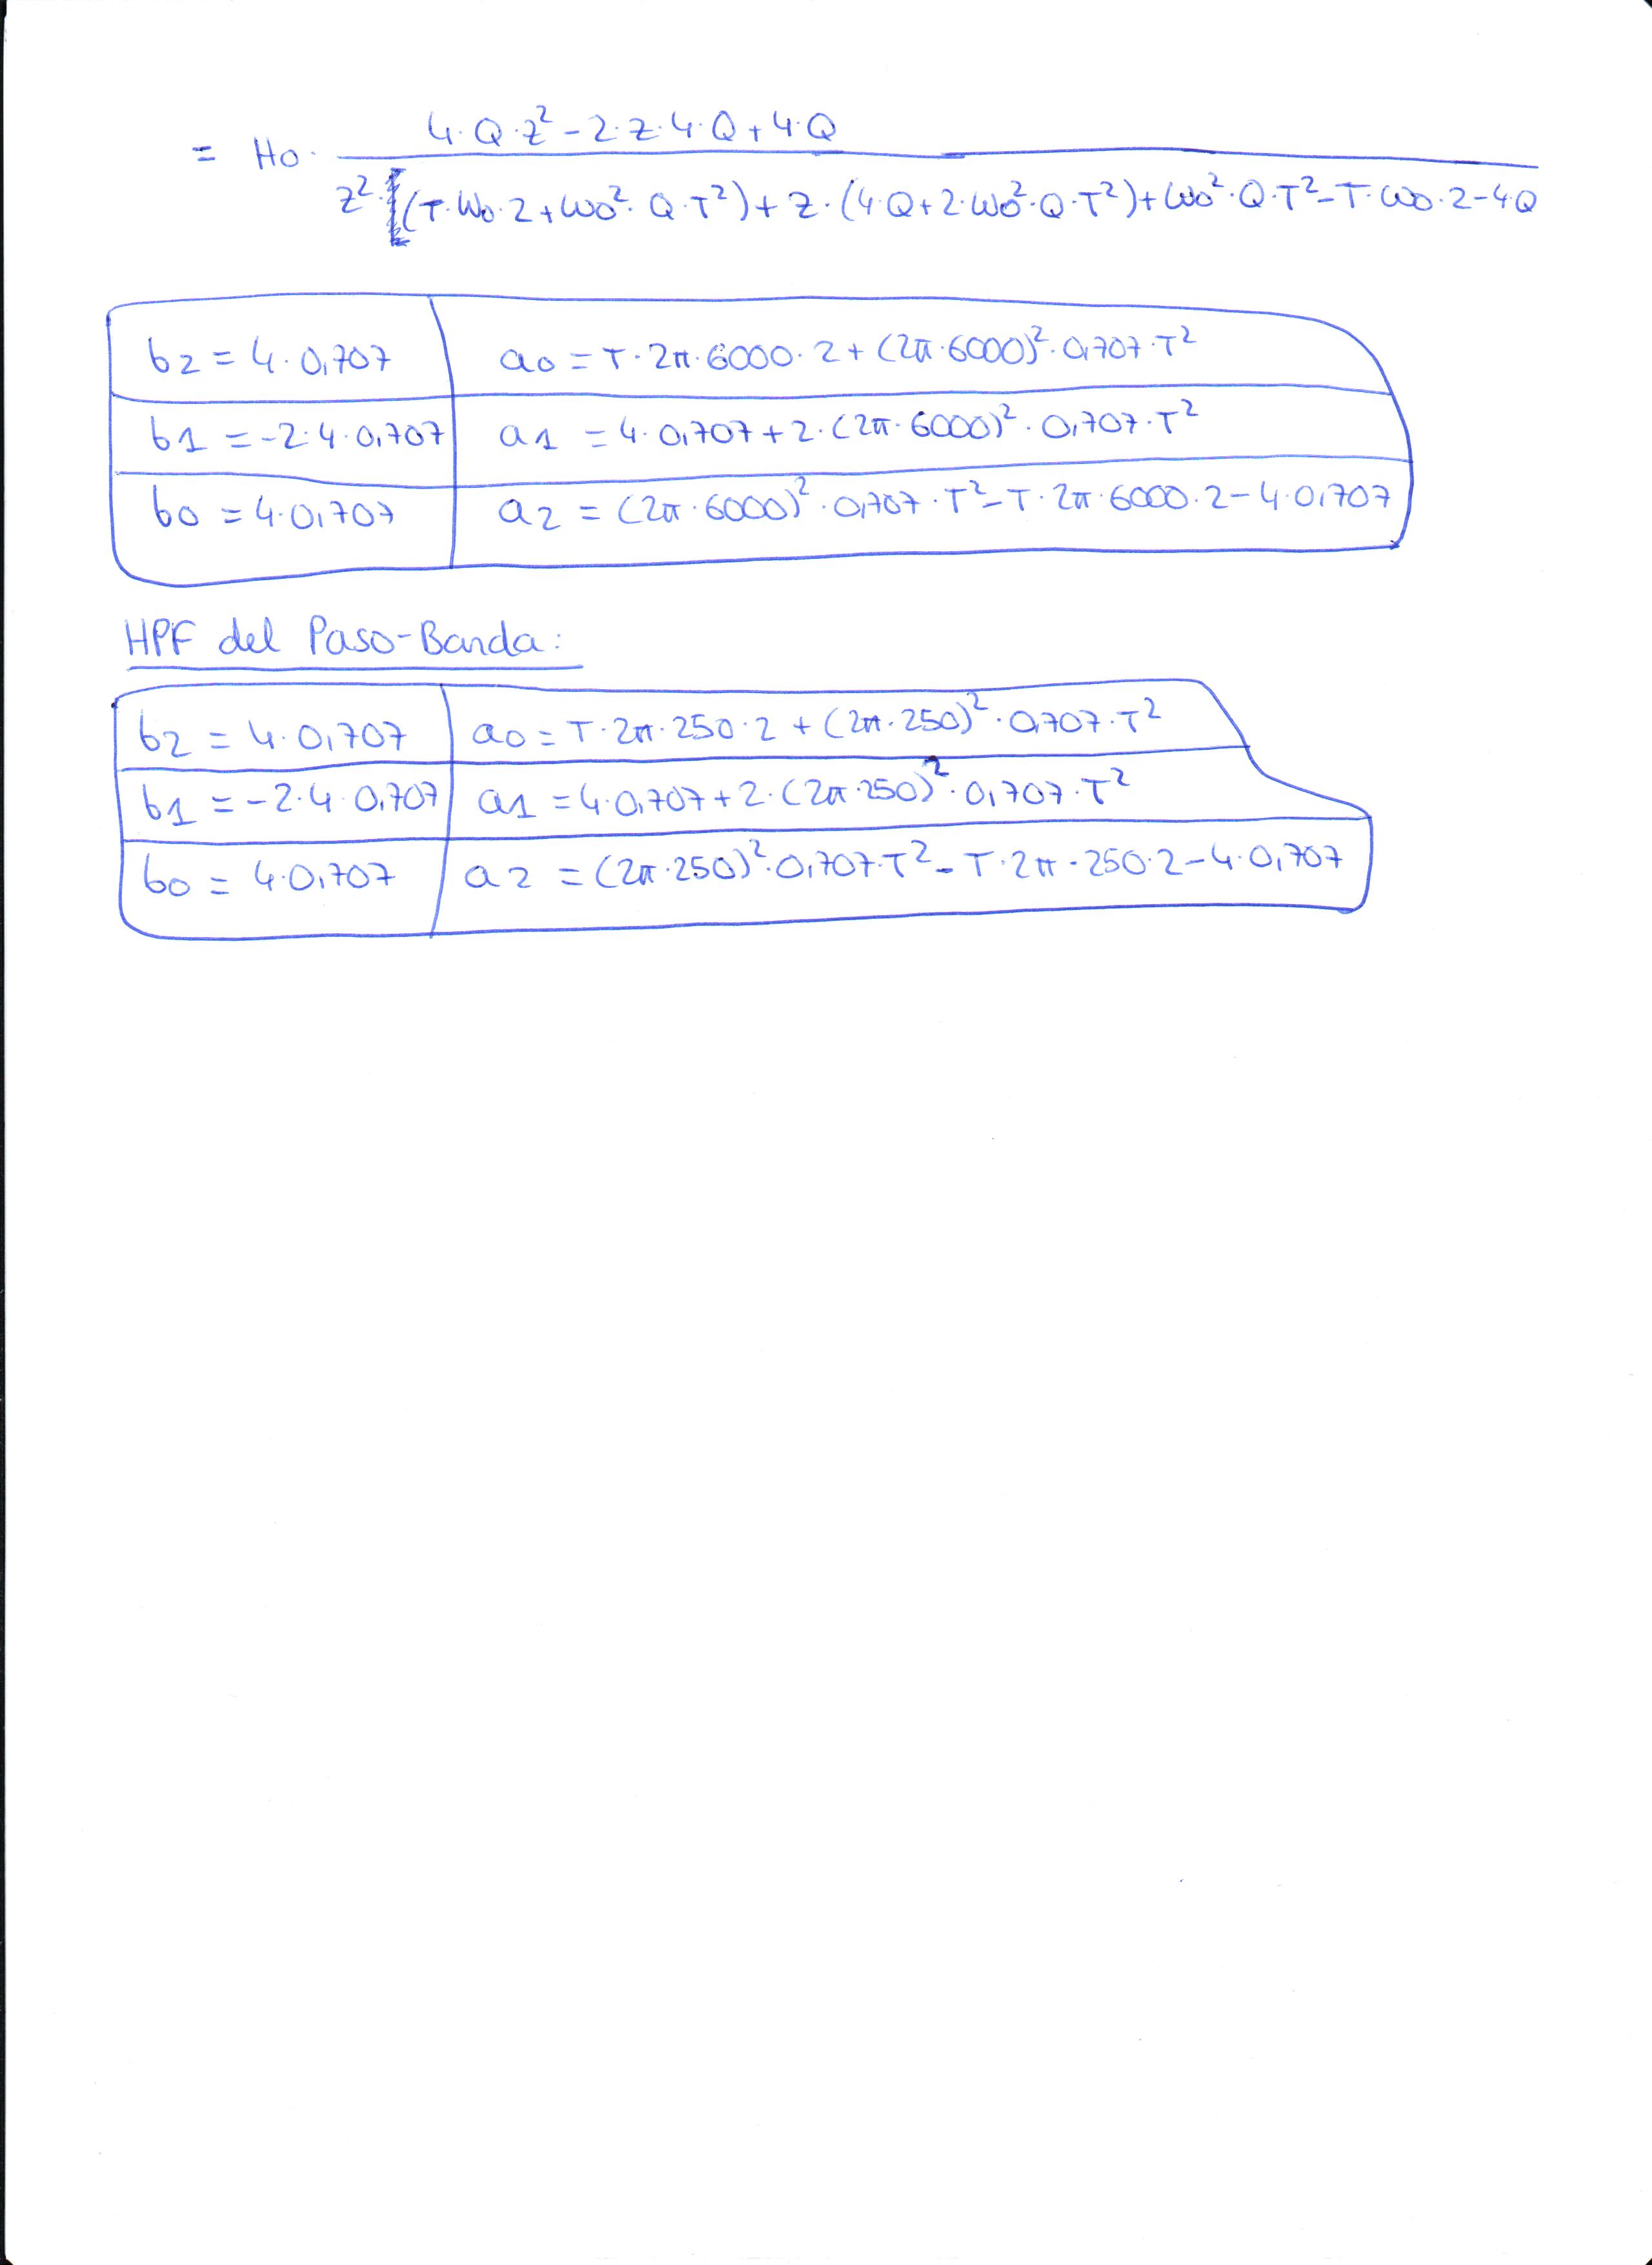 4·Q·z²-2·z·4·Q+4·Q
= Ho·
z²·(T·ωo·2+ωo²·Q·T²)+z·(4·Q+2·ωo²·Q·T²)+ωo²·Q·T²-T·ωo·2-4·Q
b2 = 4·0,707 a0 = T·2π·6000·2+(2π·6000)²·0,707·T²
b1 = -2·4·0,707 a1 = 4·0,707+2·(2π·6000)²·0,707·T²
b0 = 4·0,707 a2 = (2π·6000)²·0,707·T²-T·2π·6000·2-4·0,707
HPF del Paso-Banda:
b2 = 4·0,707 a0 = T·2π·250·2+(2π·250)²·0,707·T²
b1 = -2·4·0,707 a1 = 4·0,707+2·(2π·250)²·0,707·T²
b0 = 4·0,707 a2 = (2π·250)²·0,707·T²-T·2π·250·2-4·0,707